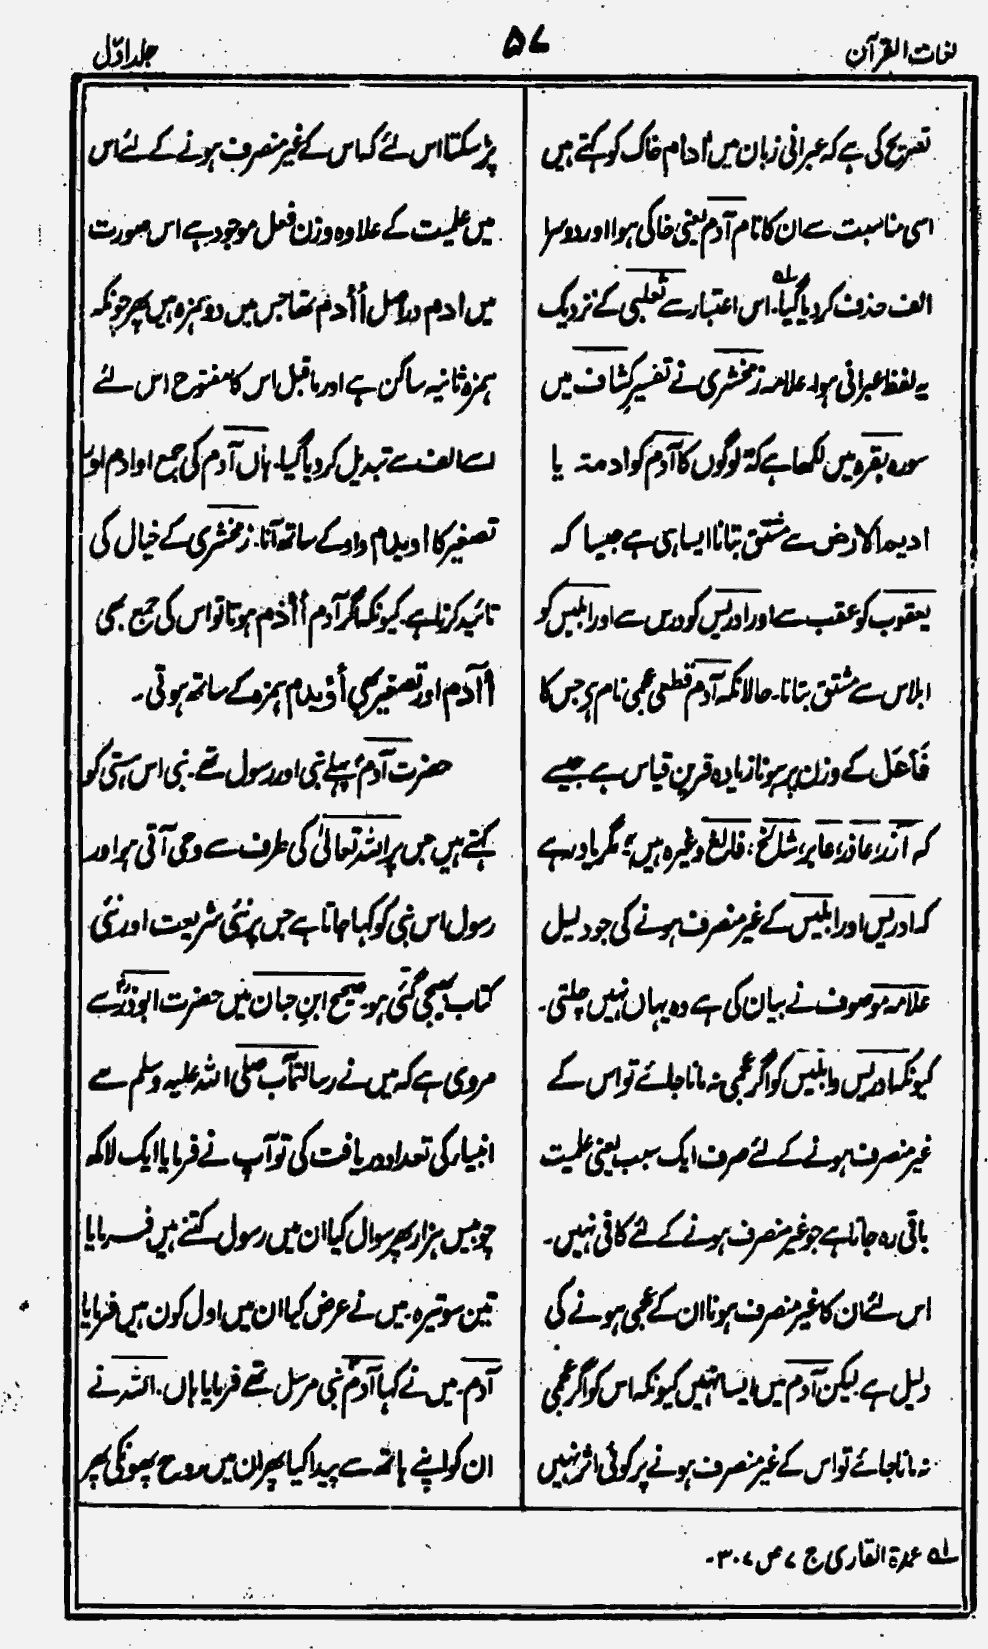 لغات القرآن
۵۷
جلد اوّل
تصریح کی ہے کہ عبرانی زبان میں اٰدام خاک کو کہتے ہیں
اسی مناسبت سے ان کا نام آدم یعنی خاکی ہوا اور دوسرا
الف حذف کر دیا گیا۔ اس اعتبار سے ثعلبی کے نزدیک
یہ لفظ عبرانی ہوا۔ علامہ زمخشری نے تفسیر کشاف میں
سورہ بقرہ میں لکھا ہے کہ لوگوں کا آدم کو ادمۃ یا
ادیم الارض سے مشتق بتانا ایسا ہی ہے جیسا کہ
یعقوب کو عقب سے اور ادریس کو درس سے اور ابلیس کو
ابلاس سے مشتق بتانا۔ حالانکہ آدم قطعی عجمی نام ہے جس کا
فَاعَل کے وزن پر ہونا زیادہ قرین قیاس ہے جیسے
کہ آزر، عاذر، عابر، شالخ، فالغ وغیرہ ہیں؛ مگر یاد رہے
کہ ادریس اور ابلیس کے غیر منصرف ہونے کی جو دلیل
علامہ موصوف نے بیان کی ہے وہ یہاں نہیں چلتی۔
کیونکہ ادریس و ابلیس کو اگر عجمی نہ مانا جائے تو اس کے
غیر منصرف ہونے کے لئے صرف ایک سبب یعنی علمیت
باقی رہ جاتا ہے جو غیر منصرف ہونے کے لئے کافی نہیں۔
اس لئے ان کا غیر منصرف ہونا ان کے عجمی ہونے کی
دلیل ہے لیکن آدم میں ایسا نہیں کیونکہ اس کو اگر عجمی
نہ مانا جائے تو اس کے غیر منصرف ہونے پر کوئی اثر نہیں
پڑ سکتا اس لئے کہ اس کے غیر منصرف ہونے کے لئے اس
میں علمیت کے علاوہ وزن فعل موجود ہے اس صورت
میں ادم دراصل أَأْدَم تھا جس میں دو ہمزہ ہیں پھر چونکہ
ہمزہ ثانیہ ساکن ہے اور ماقبل اس کا مفتوح اس لئے
اسے الف سے تبدیل کر دیا گیا۔ ہاں آدم کی جمع اوادم اور
تصغیر کا اویدم واو کے ساتھ آنا۔ زمخشری کے خیال کی
تائید کرتا ہے کیونکہ اگر آدم أَأْدَم ہوتا تو اس کی جمع بھی
أآدم اور تصغیر بھی أؤیدم ہمزہ کے ساتھ ہوتی۔
حضرت آدمؑ پہلے نبی اور رسول تھے۔ نبی اس ہستی کو
کہتے ہیں جس پر اللہ تعالیٰ کی طرف سے وحی آتی ہو اور
رسول اس نبی کو کہا جاتا ہے جس پر نئی شریعت اور نئی
کتاب بھیجی گئی ہو۔ صحیح ابن حبان میں حضرت ابوذرؓ سے
مروی ہے کہ میں نے رسالتمآب صلی اللہ علیہ وسلم سے
انبیاء کی تعداد دریافت کی تو آپ نے فرمایا ایک لاکھ
چوبیس ہزار پھر سوال کیا ان میں رسول کتنے ہیں فرمایا
تین سو تیرہ۔ میں نے عرض کیا ان میں اول کون ہیں فرمایا
آدم۔ میں نے کہا آدمؑ نبی مرسل تھے فرمایا ہاں۔ اللہ نے
ان کو اپنے ہاتھ سے پیدا کیا پھر ان میں روح پھونکی پھر
لہ عمدۃ القاری ج ۷ ص ۳۰۷۔